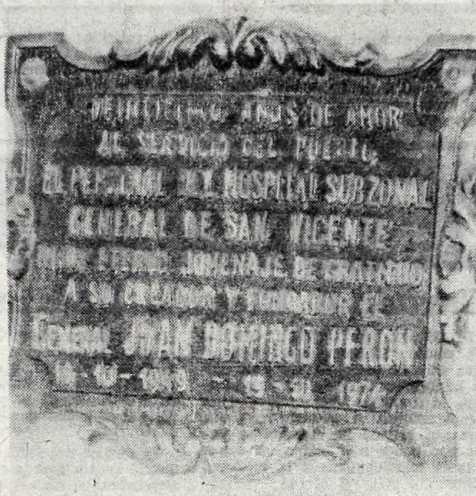 VEINTICINCO AÑOS DE AMOR
AL SERVICIO DEL PUEBLO,
EL PERSONAL DEL HOSPITAL SUBZONAL
GENERAL DE SAN VICENTE
ETERNO HOMENAJE DE GRATITUD
A SU CREADOR Y FUNDADOR EL
GENERAL JUAN DOMINGO PERON
1974